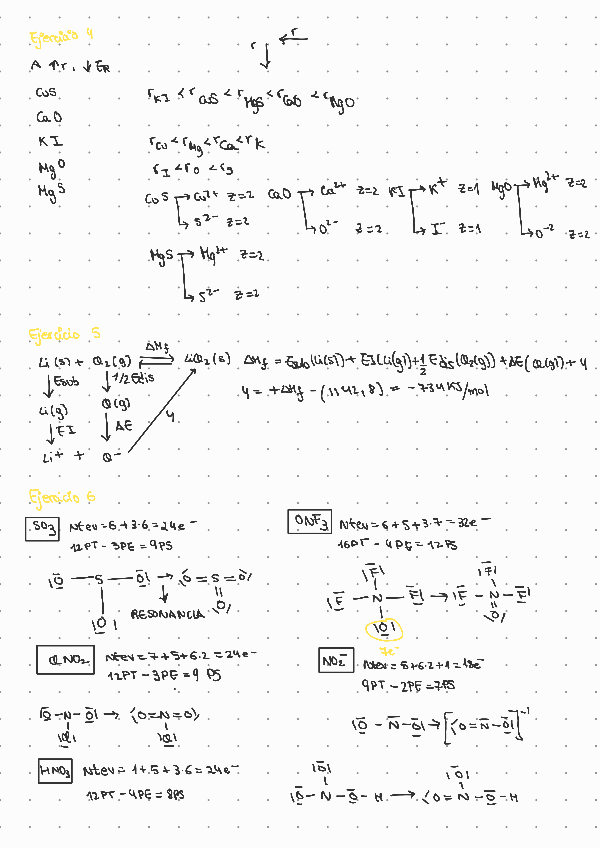 Ejercicio 4
r
r
A ↑r, ↓ER
CuS
CaO
KI
MgO
MgS
rKI < rCuS < rMgS < rCaO < rMgO
rCu < rMg < rCa < rK
rI < rO < rS
CuS → Cu2+ Z=2
→ S2- Z=2
CaO → Ca2+ Z=2
→ O2- Z=2
KI → K+ Z=1
→ I- Z=1
MgO → Mg2+ Z=2
→ O-2 Z=2
MgS → Mg2+ Z=2
→ S2- Z=2
Ejercicio 5
Li (s) + Cl2(g) ΔHf LiCl2(s)
↓Esub ↓1/2 Edis
Li(g) Cl(g)
↓EI ↓ΔE
Li+ + Cl-
4
ΔHf = Esub(Li(s)) + EI(Li(g)) + 1/2 Edis(Cl2(g)) + ΔE(Cl(g)) + 4
4 = +ΔHf - (1142,8) = -734 KJ/mol
Ejercicio 6
SO3 Ntev = 6+3·6 = 24e-
12PT - 3PE = 9PS
|O - S - O| → ⟨O = S = O⟩
|O| O
RESONANCIA
ONF3 Ntev = 6+5+3·7 = 32e-
16PT - 4PE = 12PS
|F|
|F - N - F| → |F - N - F|
|O| O
7e-
ClNO2 Ntev = 7+5+6·2 = 24e-
12PT - 3PE = 9 PS
|O - N - O| → ⟨O = N = O⟩
|Cl| |Cl|
NO2- Ntev = 5+6·2+1 = 18e-
9PT - 2PE = 7PS
|O - N - O| → [⟨O = N - O|]-1
HNO3 Ntev = 1+5+3·6 = 24e-
12PT - 4PE = 8PS
|O| |O|
|O - N - O - H → ⟨O = N - O - H